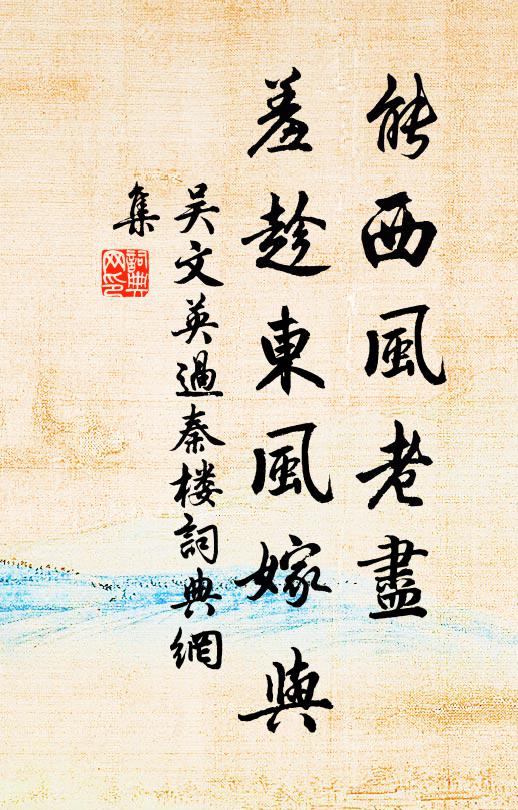 能西風老盡
羞趁東風嫁與
吴文英過秦楼詞典網
集
詞典网印